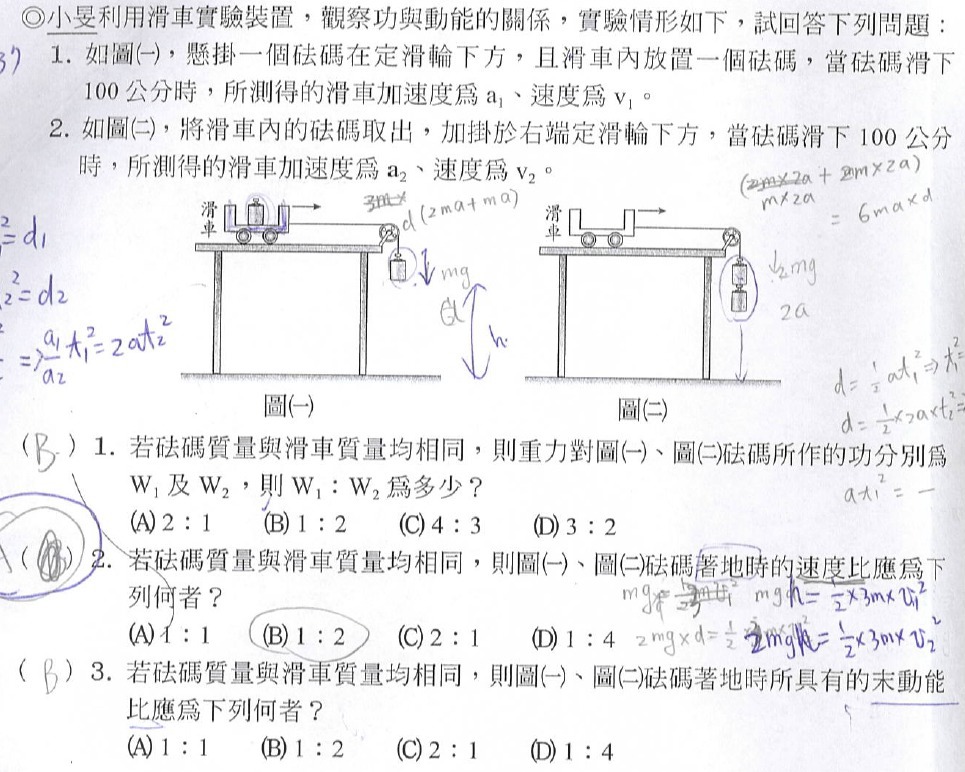 ◎小旻利用滑車實驗裝置，觀察功與動能的關係，實驗情形如下，試回答下列問題：
1. 如圖㈠，懸掛一個砝碼在定滑輪下方，且滑車內放置一個砝碼，當砝碼滑下
100 公分時，所測得的滑車加速度為 a₁、速度為 v₁。
2. 如圖㈡，將滑車內的砝碼取出，加掛於右端定滑輪下方，當砝碼滑下 100 公分
時，所測得的滑車加速度為 a₂、速度為 v₂。
+ 2m×2a)
m×2a
= 6ma×d
滑車
d(2ma+ma)
滑車
²=d₁
₂²=d₂
mg
h
↓2mg
2a
⇒ a₁/a₂ t₁²=2at₂²
d= ½ at₁² ⇒ t₁²=
d= ½×2a×t₂²=
圖㈠
圖㈡
（B）1. 若砝碼質量與滑車質量均相同，則重力對圖㈠、圖㈡砝碼所作的功分別為
W₁ 及 W₂，則 W₁：W₂ 為多少？
at₁² = —
(A) 2：1 (B) 1：2 (C) 4：3 (D) 3：2
A（ ）2. 若砝碼質量與滑車質量均相同，則圖㈠、圖㈡砝碼著地時的速度比應為下
列何者？
mgh= ½×3m×v₁²
(A) 1：1 (B) 1：2 (C) 2：1 (D) 1：4
2mg×d= ½
2mgh= ½×3m×v₂²
（B）3. 若砝碼質量與滑車質量均相同，則圖㈠、圖㈡砝碼著地時所具有的末動能
比應為下列何者？
(A) 1：1 (B) 1：2 (C) 2：1 (D) 1：4